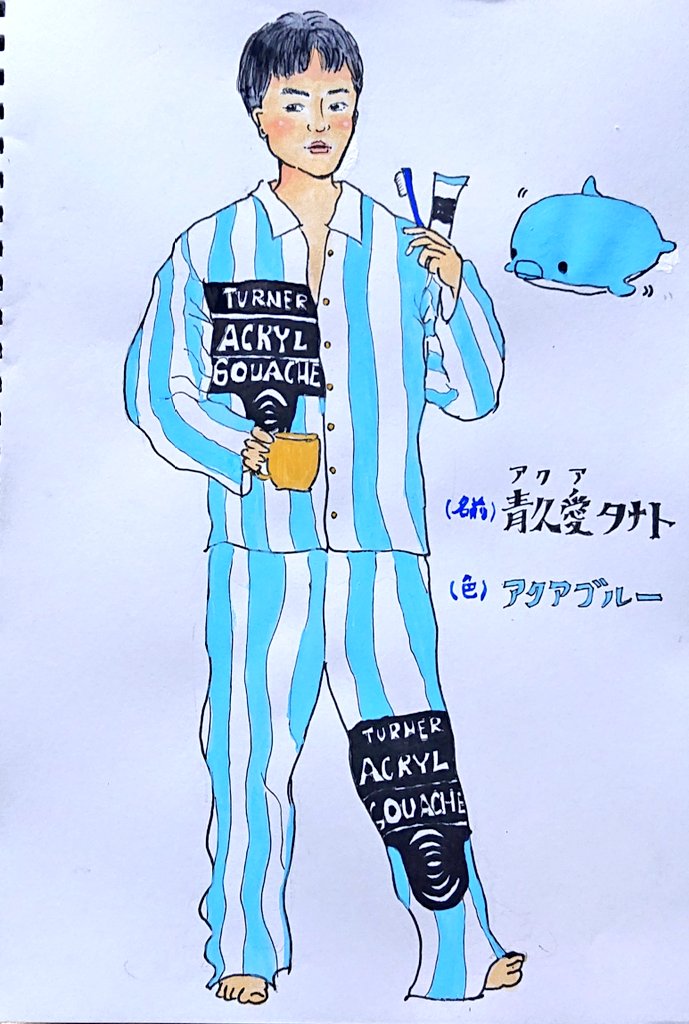 TURNER
ACRYL
GOUACHE
アクア
(名前) 青久愛タナト
(色) アクアブルー
TURNER
ACRYL
GOUACHE